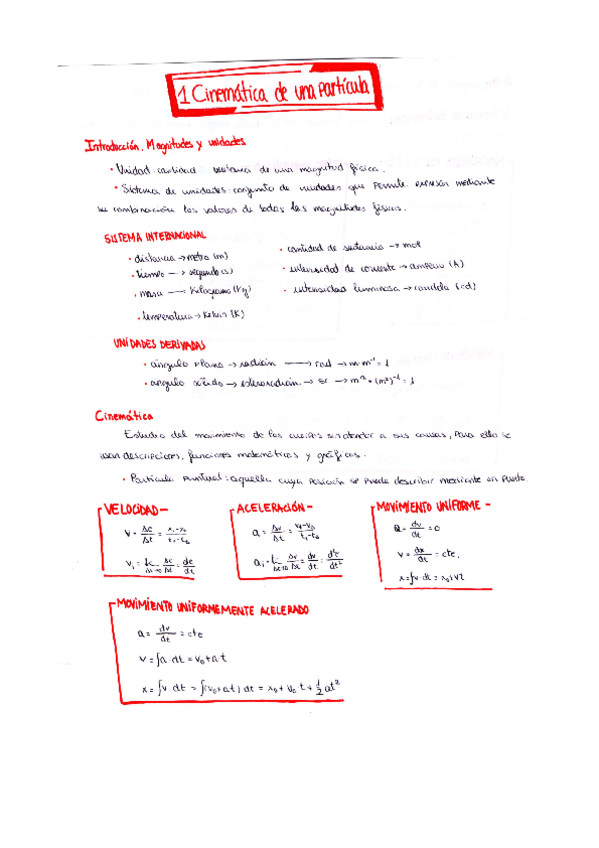 1 Cinemática de una partícula
Introducción, Magnitudes y unidades
· Unidad: cantidad de una magnitud física.
· Sistema de unidades: conjunto de unidades que permite expresar mediante
su combinación los valores de todas las magnitudes físicas.
SISTEMA INTERNACIONAL
· distancia → metro (m)
· tiempo → segundo (s)
· masa → Kilogramo (Kg)
· temperatura → Kelvin (K)
· cantidad de sustancia → mol
· intensidad de corriente → amperio (A)
· intensidad luminosa → candela (cd)
UNIDADES DERIVADAS
· ángulo plano → radián → rad → m·m⁻¹ = 1
· angulo sólido → estereoradián → sr → m² · (m²)⁻¹ = 1
Cinemática
Estudio del movimiento de los cuerpos sin atender a sus causas, para ello se
usan descripciones, funciones matemáticas y gráficas.
· Partícula puntual: aquella cuya posición se puede describir mediante un punto
VELOCIDAD -
v = Δe/Δt = x₁-x₀/t₁-t₀
vᵢ = lim Δt→0 Δe/Δt = de/dt
ACELERACIÓN -
a = Δv/Δt = v₁-v₀/t₁-t₀
aᵢ = lim Δt→0 Δv/Δt = dv/dt = d²e/dt²
MOVIMIENTO UNIFORME -
a = dv/dt = 0
v = dx/dt = cte.
x = ∫v·dt = x₀+vt
MOVIMIENTO UNIFORMEMENTE ACELERADO
a = dv/dt = cte
v = ∫a·dt = v₀+at
x = ∫v·dt = ∫(v₀+at)dt = x₀+v₀·t+½at²